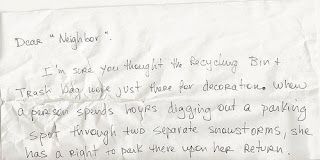 Dear "Neighbor".
I'm sure you thought the Recycling Bin +
Trash bag were just there for decoration. When
a person spends hours digging out a parking
spot through two separate snowstorms, she
has a right to park there upon her return.